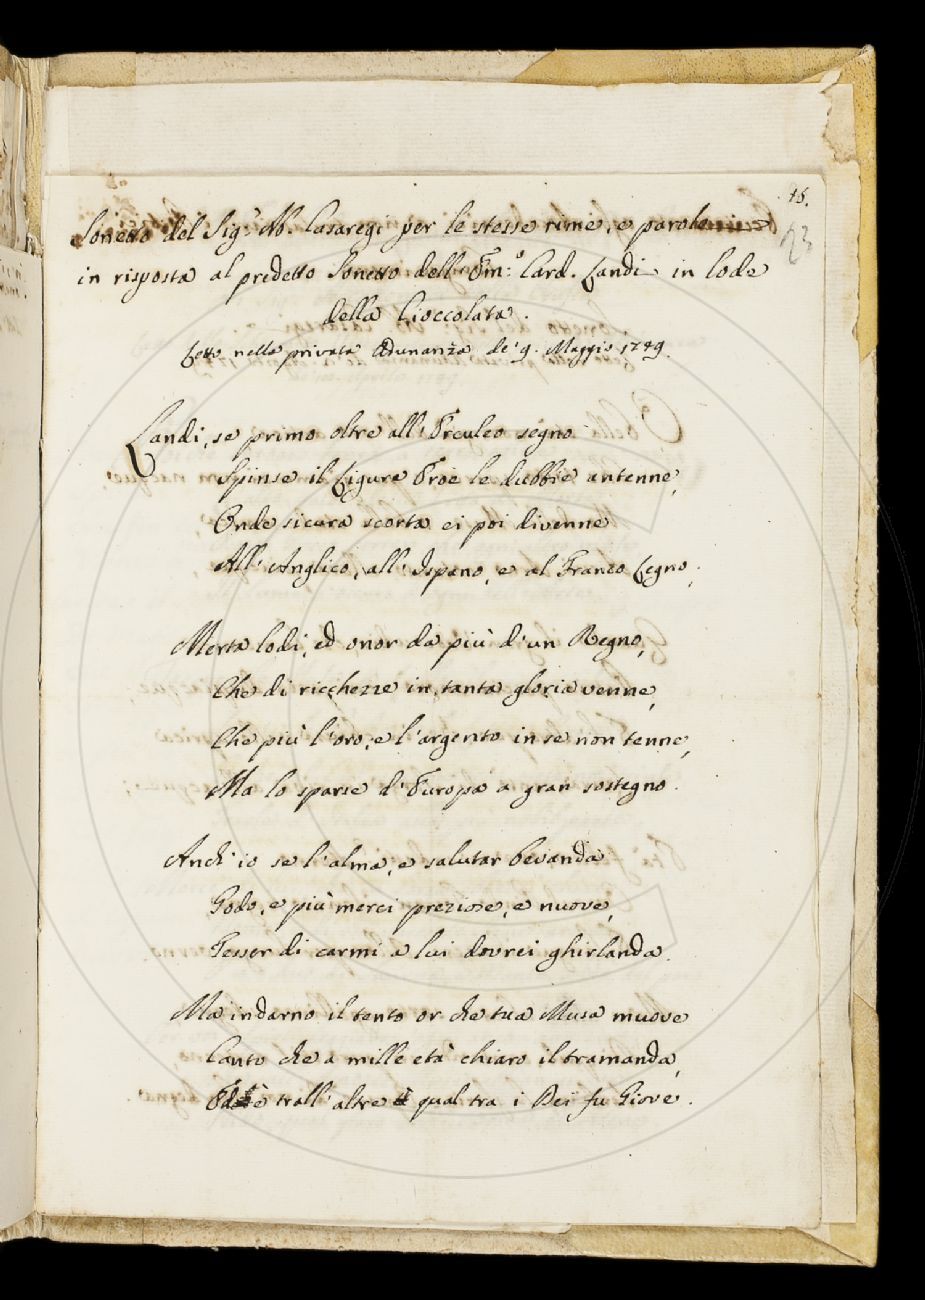 15.
23
Sonetto del Sig.r Ab. Casaregi per le stesse rime, e parole
in risposta al predetto Sonetto dell' Em:o Card. Landi in lode
della Cioccolata.
Letto nella privata Adunanza de' 9. Maggio 1749.
Landi, se primo oltre all' Erculeo segno
Spinse il Ligure Eroe le dubbie antenne,
Onde sicura scorta ei poi divenne
All' Anglico, all' Ispano, e al Franco Legno;
Merta lodi, ed onor da più d'un Regno,
Che di ricchezze in tanta gloria venne,
Che più l'oro, e l'argento in se non tenne,
Ma lo sparse d'Europa a gran sostegno.
Anch' io se l'alma, e salutar bevanda
Godo, e più merci preziose, e nuove,
Tesser di carmi a lui dovrei ghirlanda.
Ma indarno il tento or che tua Musa muove
Canto che a mille età chiaro il tramanda,
Ed è trall' altre qual tra i Dei fu Giove.